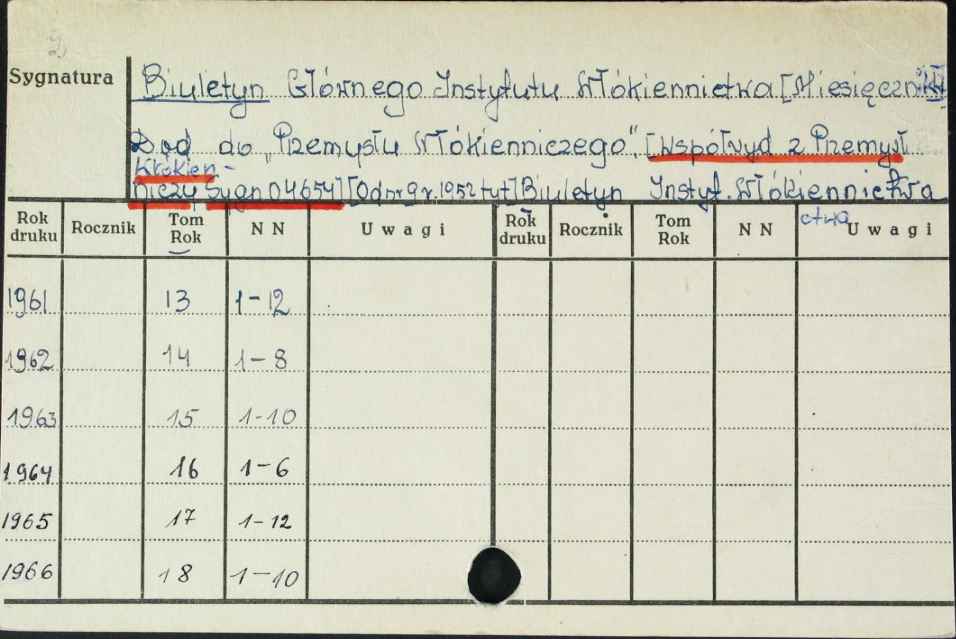 2
Sygnatura
Biuletyn Głównego Instytutu Włókiennictwa [Miesięcznik]
Dod do „Przemysłu Włókienniczego". [Współwyd z Przemysł
Włókien-
niczy Sygn 04654] [Od nr 9 r. 1952 tyt] Biuletyn Instyt. Włókiennictwa
ctwa
Rok druku Rocznik Tom Rok N N Uwagi Rok druku Rocznik Tom Rok N N Uwagi
1961 13 1-12
1962 14 1-8
1963 15 1-10
1964 16 1-6
1965 17 1-12
1966 18 1-10